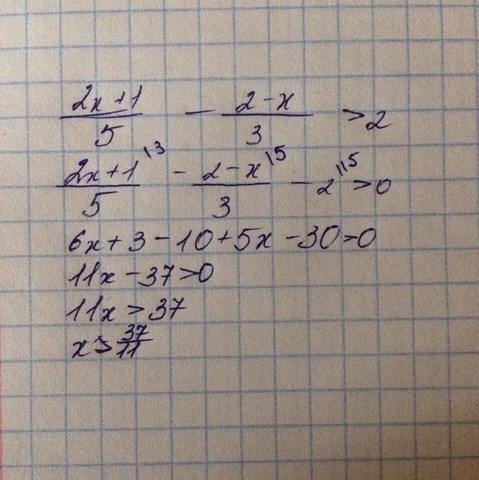 (2x+1)/5 - (2-x)/3 >2
(2x+1)/5 \3 - (2-x)/3 \5 - 2 \15 >0
6x+3-10+5x-30>0
11x-37>0
11x>37
x>37/11